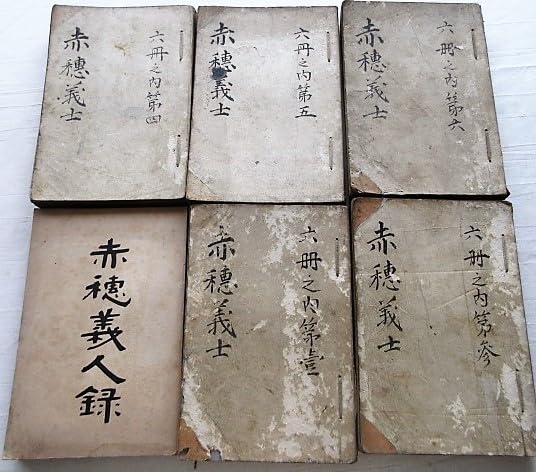 六冊之内第四
赤穂義士
六冊之内第五
赤穂義士
六冊之内第六
赤穂義士
赤穂義人録
六冊之内第壹
赤穂義士
六冊之内第参
赤穂義士